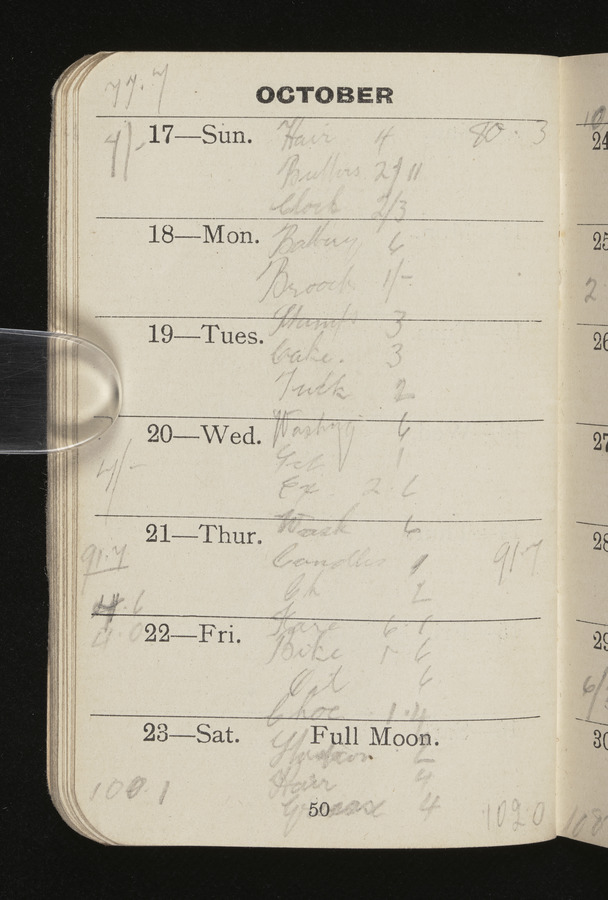 77.7
OCTOBER
4/- 17—Sun. Hair 4 80.3
Butlers 2/11
Clock 2/3
18—Mon. Battery 6
Brooch 1/-
19—Tues. Stamps 3
Cake. 3
Tuck 2
20—Wed. Washing 6
1
4/- Ex 2.6
21—Thur. Wash 6
91.7 Candles 1 91.7
Ch 2
4.0 22—Fri. Fare 6.6
Bike 1 6
6
Choc 1.4
23—Sat. Full Moon.
Hair 4
100.1
Grease 4
50 102.0
10
24
25
2
26
27
28
29
6/
30
108